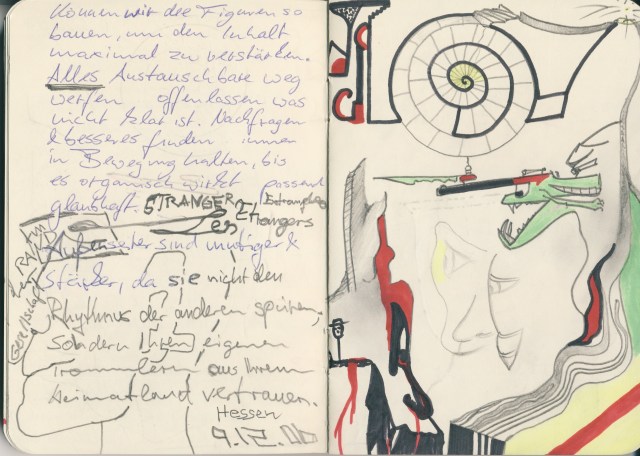 Können wir die Figuren so
bauen, um den Inhalt
maximal zu verstärken.
Alles Austauschbare weg
werfen offenlassen was
nicht klar ist. Nachfragen
& besseres finden immer
in Bewegung halten, bis
es organisch wirkt passend
glaubhaft. STRANGER
Les Etrangers
Außenseiter sind mutiger &
stärker, da sie nicht den
Rhythmus der anderen spüren,
sondern Ihren eigenen
Trommlern aus Ihrem
Heimatland vertrauen.
Hessen
9.12.
Gesellschaft